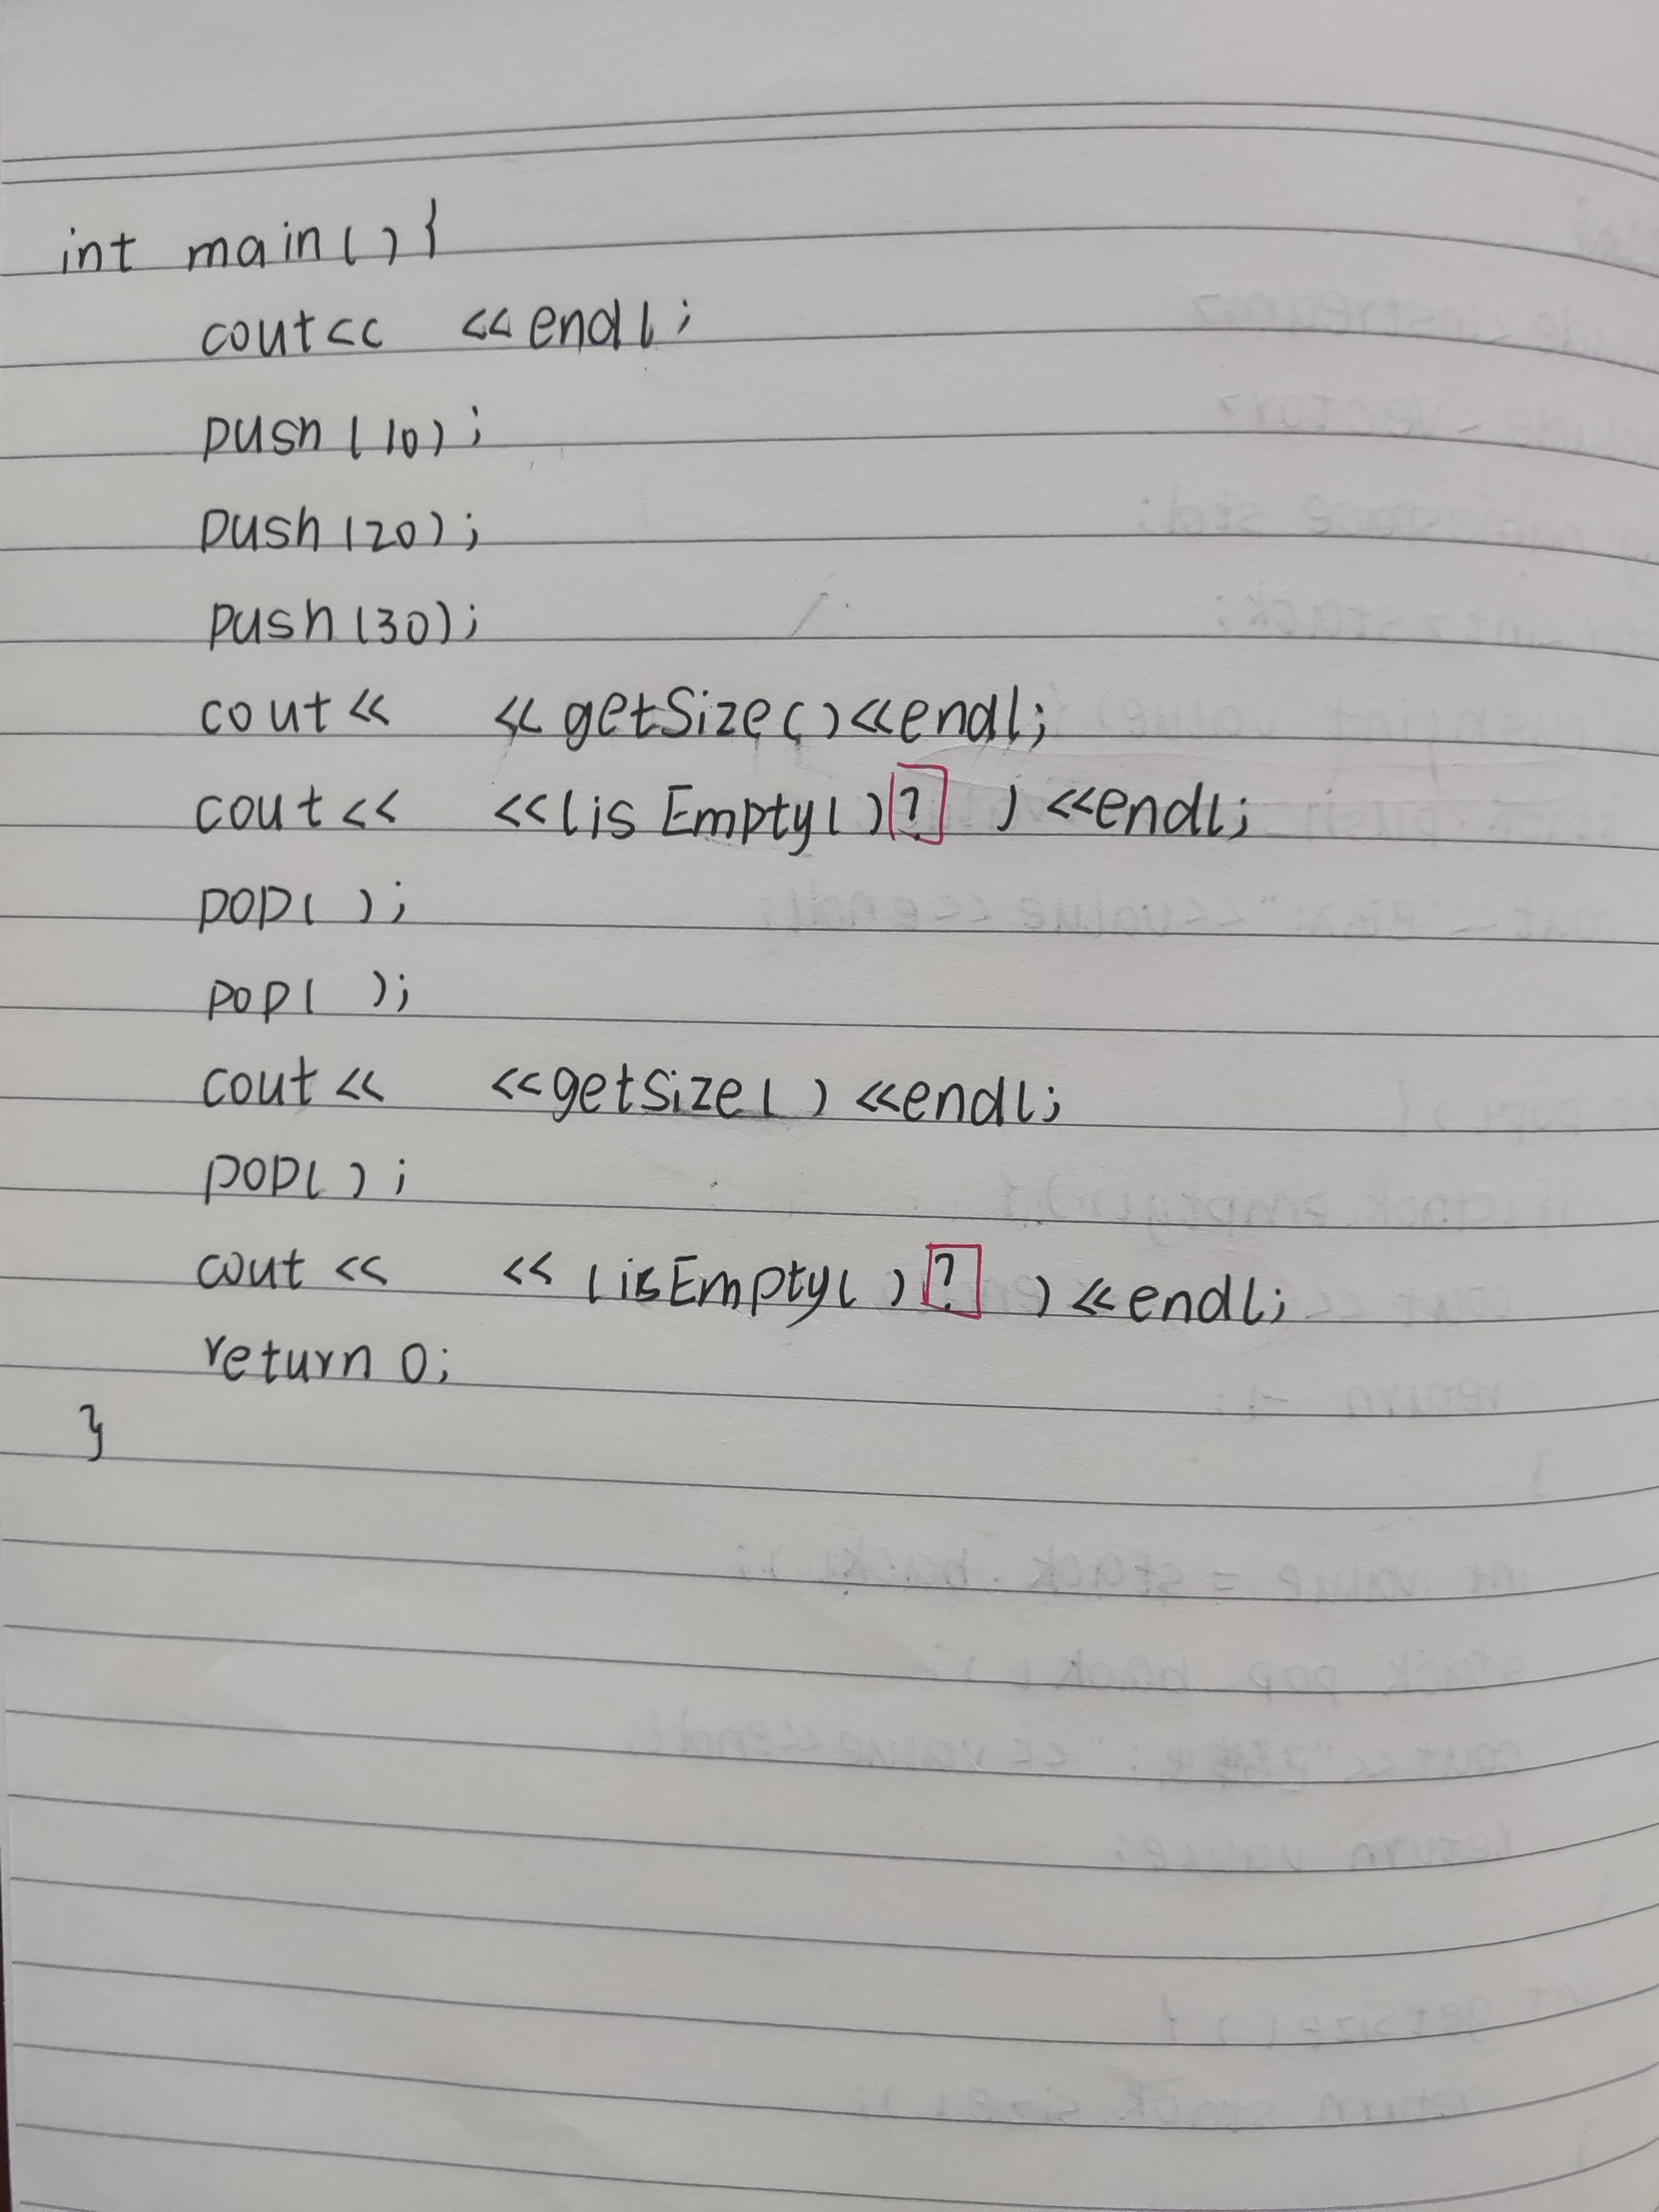 int main(){
cout<< <<endl;
push(10);
push(20);
push(30);
cout<< <<getSize()<<endl;
cout<< <<(isEmpty()? )<<endl;
pop( );
pop( );
cout<< <<getSize( )<<endl;
pop( );
cout<< <<(isEmpty( )? )<<endl;
return 0;
}